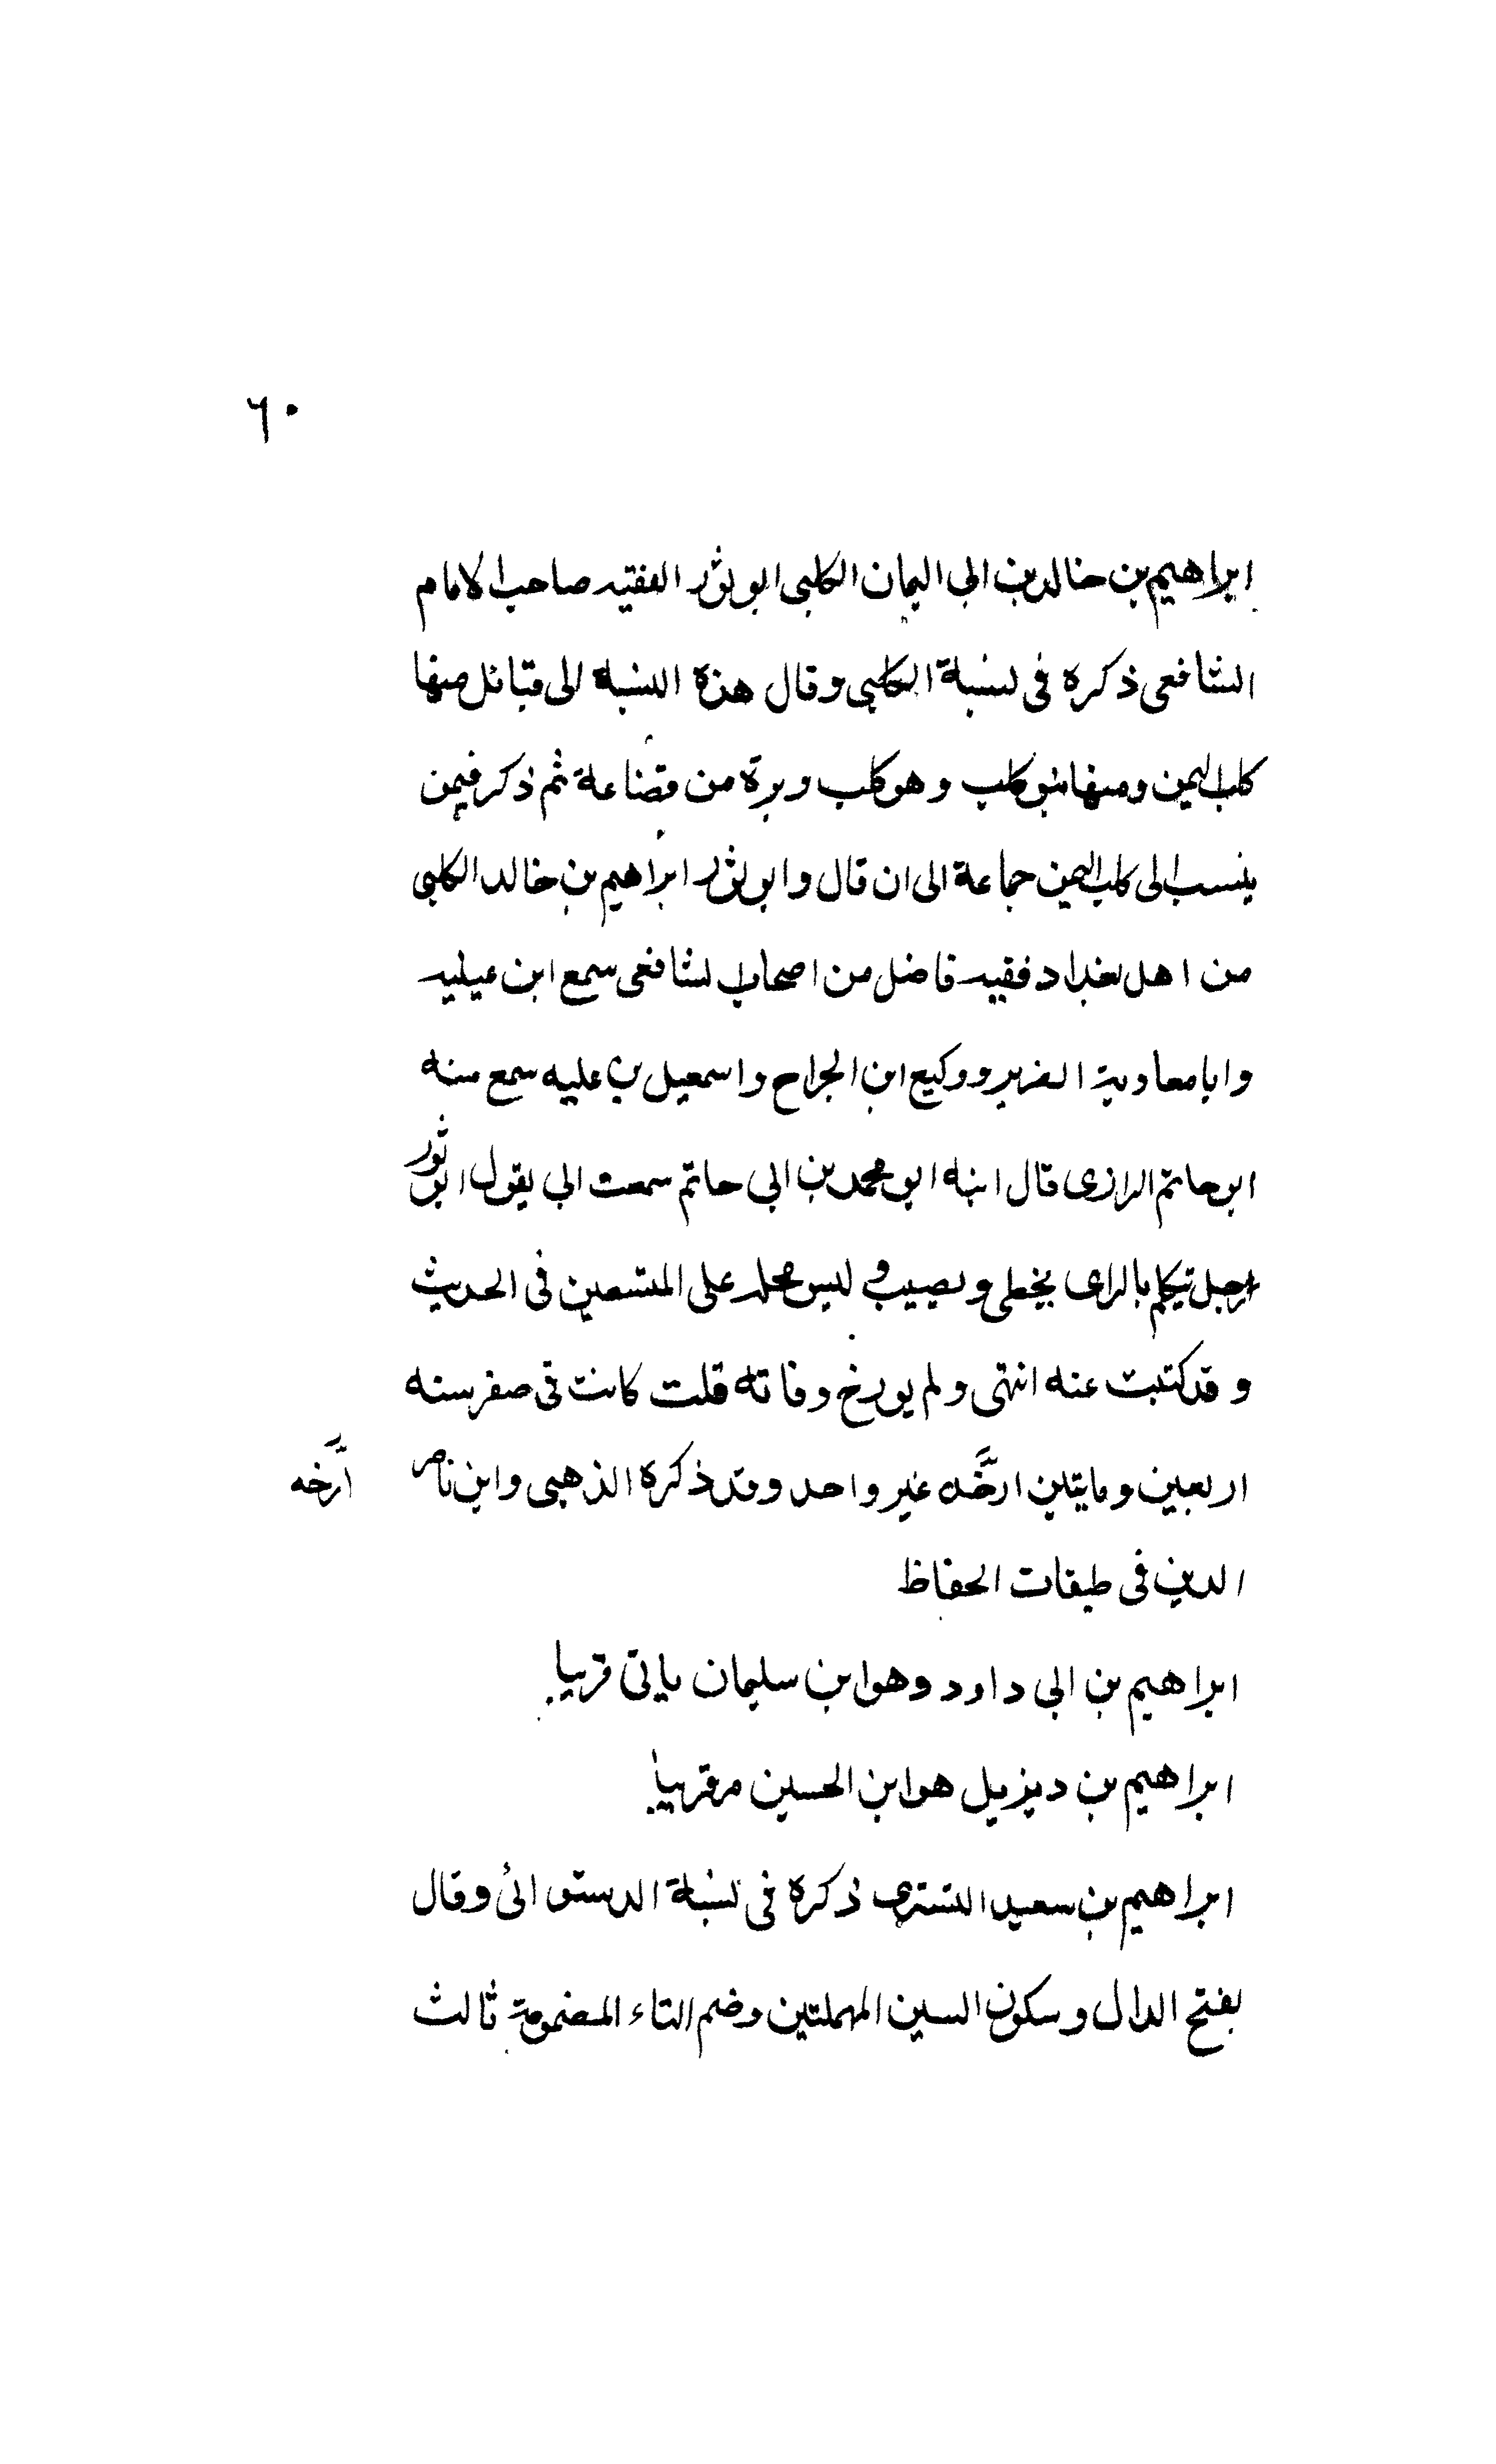 ٦٠
ابراهيم بن خالد بن ابى اليمان الكلبى ابو ثور الفقيه صاحب الامام
الشافعى ذكره فى نسبة الكلبى وقال هذه النسبة الى قبائل منها
كلب اليمن ومنها بنو كلب وهو كلب وبرة من قضاعة ثم ذكر فيمن
ينسب الى كلب اليمن جماعة الى ان قال وابو ثور ابراهيم بن خالد الكلبى
من اهل بغداد فقيه فاضل من اصحاب الشافعى سمع ابن عيينه
وابا معاوية الضرير ووكيع ابن الجراح واسمعيل بن عليه سمع منه
ابو حاتم الرازى قال ابنه ابو محمد بن ابى حاتم سمعت ابى يقول ابو ثور
رجل تيكلم بالراى يخطى ويصيب و ليس محله على المتسعين فى الحديث
وقد كتبت عنه انتهى ولم يورخ وفاته قلت كانت فى صفر سنه
اربعين ومايتين ارَّخه غير واحد وقد ذكره الذهبى وابن ناصر
ارَّخه
الدين فى طبقات الحفاظ
ابراهيم بن ابى داود وهو ابن سليمان ياتى قريبا
ابراهيم بن ديزيل هو ابن الحسين مر قريبا
ابراهيم بن سعيد التسترى ذكره فى نسبة الدستوائى وقال
بفتح الدال وسكون السين المهملتين وضم التاء المضمومة ثالث